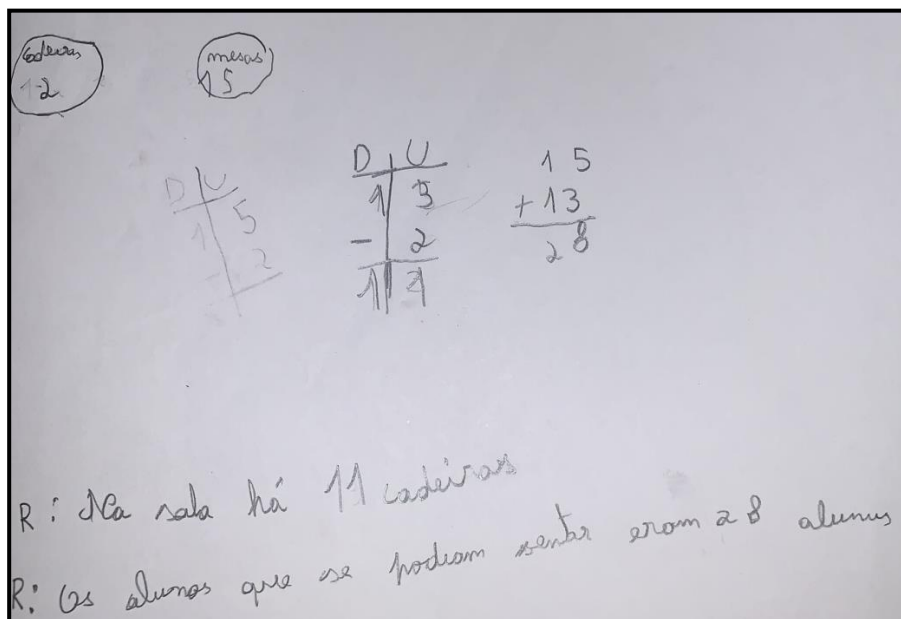 cadeiras mesas
12 15
D U D U 1 5
1 5 1 3 + 1 3
- 2 - 2 2 8
1 1
R: Na sala há 11 cadeiras
R: Os alunos que se podiam sentar eram 28 alunus